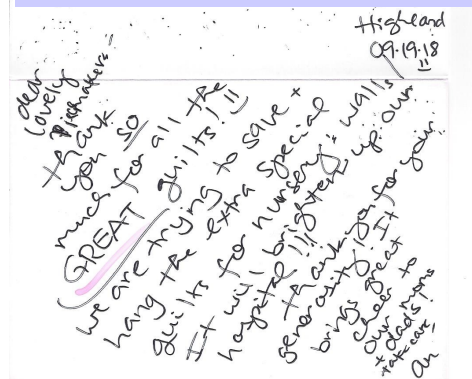 Highland
09.19.18
dear
lovely
Piecemakers -
thank
you so
much for all the
GREAT quilts!
we are trying to save +
hang the extra special
quilts for nursery walls
It will brighten up our
hospital!!!
thank you for your
generosity! It
brings great
cheer to
our moms
+ dad's!
take care,